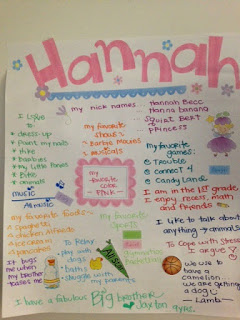 Hannah
my nick names
Hannah Becc
Hanna banana
Squirt Bert
princess
I love to
dress-up
Paint my nails
Hike
barbies
my little ponies
Bike
animals
music
my favorite
shows:
Barbie Movies
musicals
my favorite
games:
Trouble
Connect 4
Candy Land
my
favorite
color
PINK
I am in the 1st grade.
I enjoy recess, math
and friends
my favorite foods-
spaghetti
chicken alfredo
ice cream
pancakes
my favorite
sports
I like to talk about
anything → animals
To cope with stress
I argue
It bugs
me when
my brother
teases me
To Relax
play with
dogs
bath
snuggle with
my parents
Alien
we use to
have a
camelion
we are getting
a dog
Lamb
I have a fabulous Big brother
Jayten 9yrs.